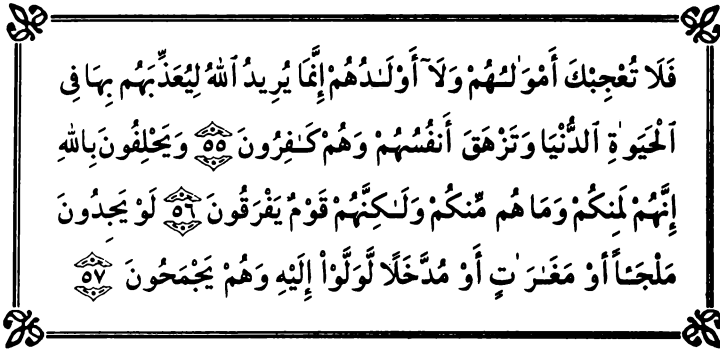 فَلَا تُعْجِبْكَ أَمْوَٰلُهُمْ وَلَآ أَوْلَٰدُهُمْ إِنَّمَا يُرِيدُ ٱللَّهُ لِيُعَذِّبَهُم بِهَا فِى
ٱلْحَيَوٰةِ ٱلدُّنْيَا وَتَزْهَقَ أَنفُسُهُمْ وَهُمْ كَٰفِرُونَ ٥٥ وَيَحْلِفُونَ بِٱللَّهِ
إِنَّهُمْ لَمِنكُمْ وَمَا هُم مِّنكُمْ وَلَٰكِنَّهُمْ قَوْمٌ يَفْرَقُونَ ٥٦ لَوْ يَجِدُونَ
مَلْجَـًٔا أَوْ مَغَٰرَٰتٍ أَوْ مُدَّخَلًا لَّوَلَّوْا۟ إِلَيْهِ وَهُمْ يَجْمَحُونَ ٥٧